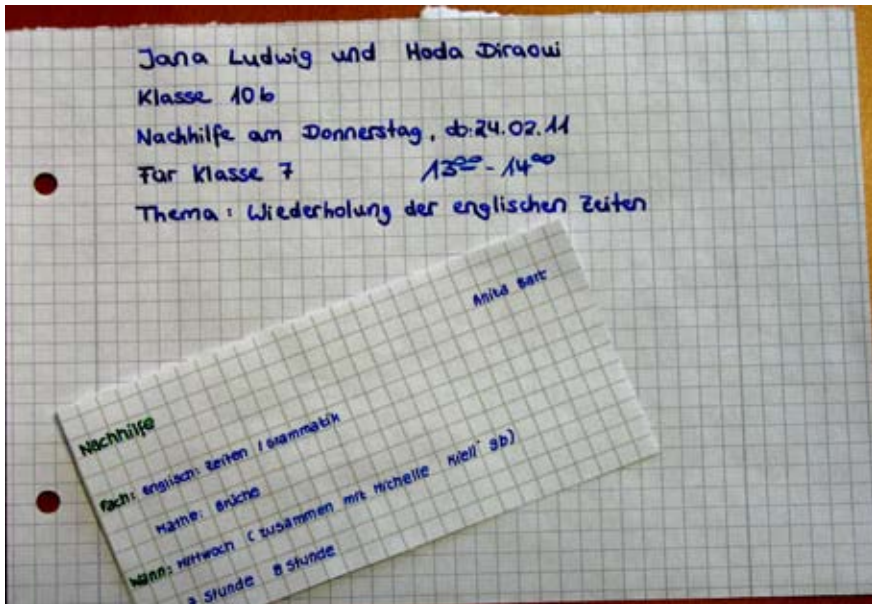 Jana Ludwig und Hoda Diraoui
Klasse 10b
Nachhilfe am Donnerstag, ab: 24.02.11
Für Klasse 7 13⁰⁰ - 14⁰⁰
Thema: Wiederholung der englischen Zeiten
Anita Bart
Nachhilfe
Fach: Englisch: Zeiten / Grammatik
Mathe: Brüche
Wann: Mittwoch (zusammen mit Michelle 9b)
Stunde 8 Stunde